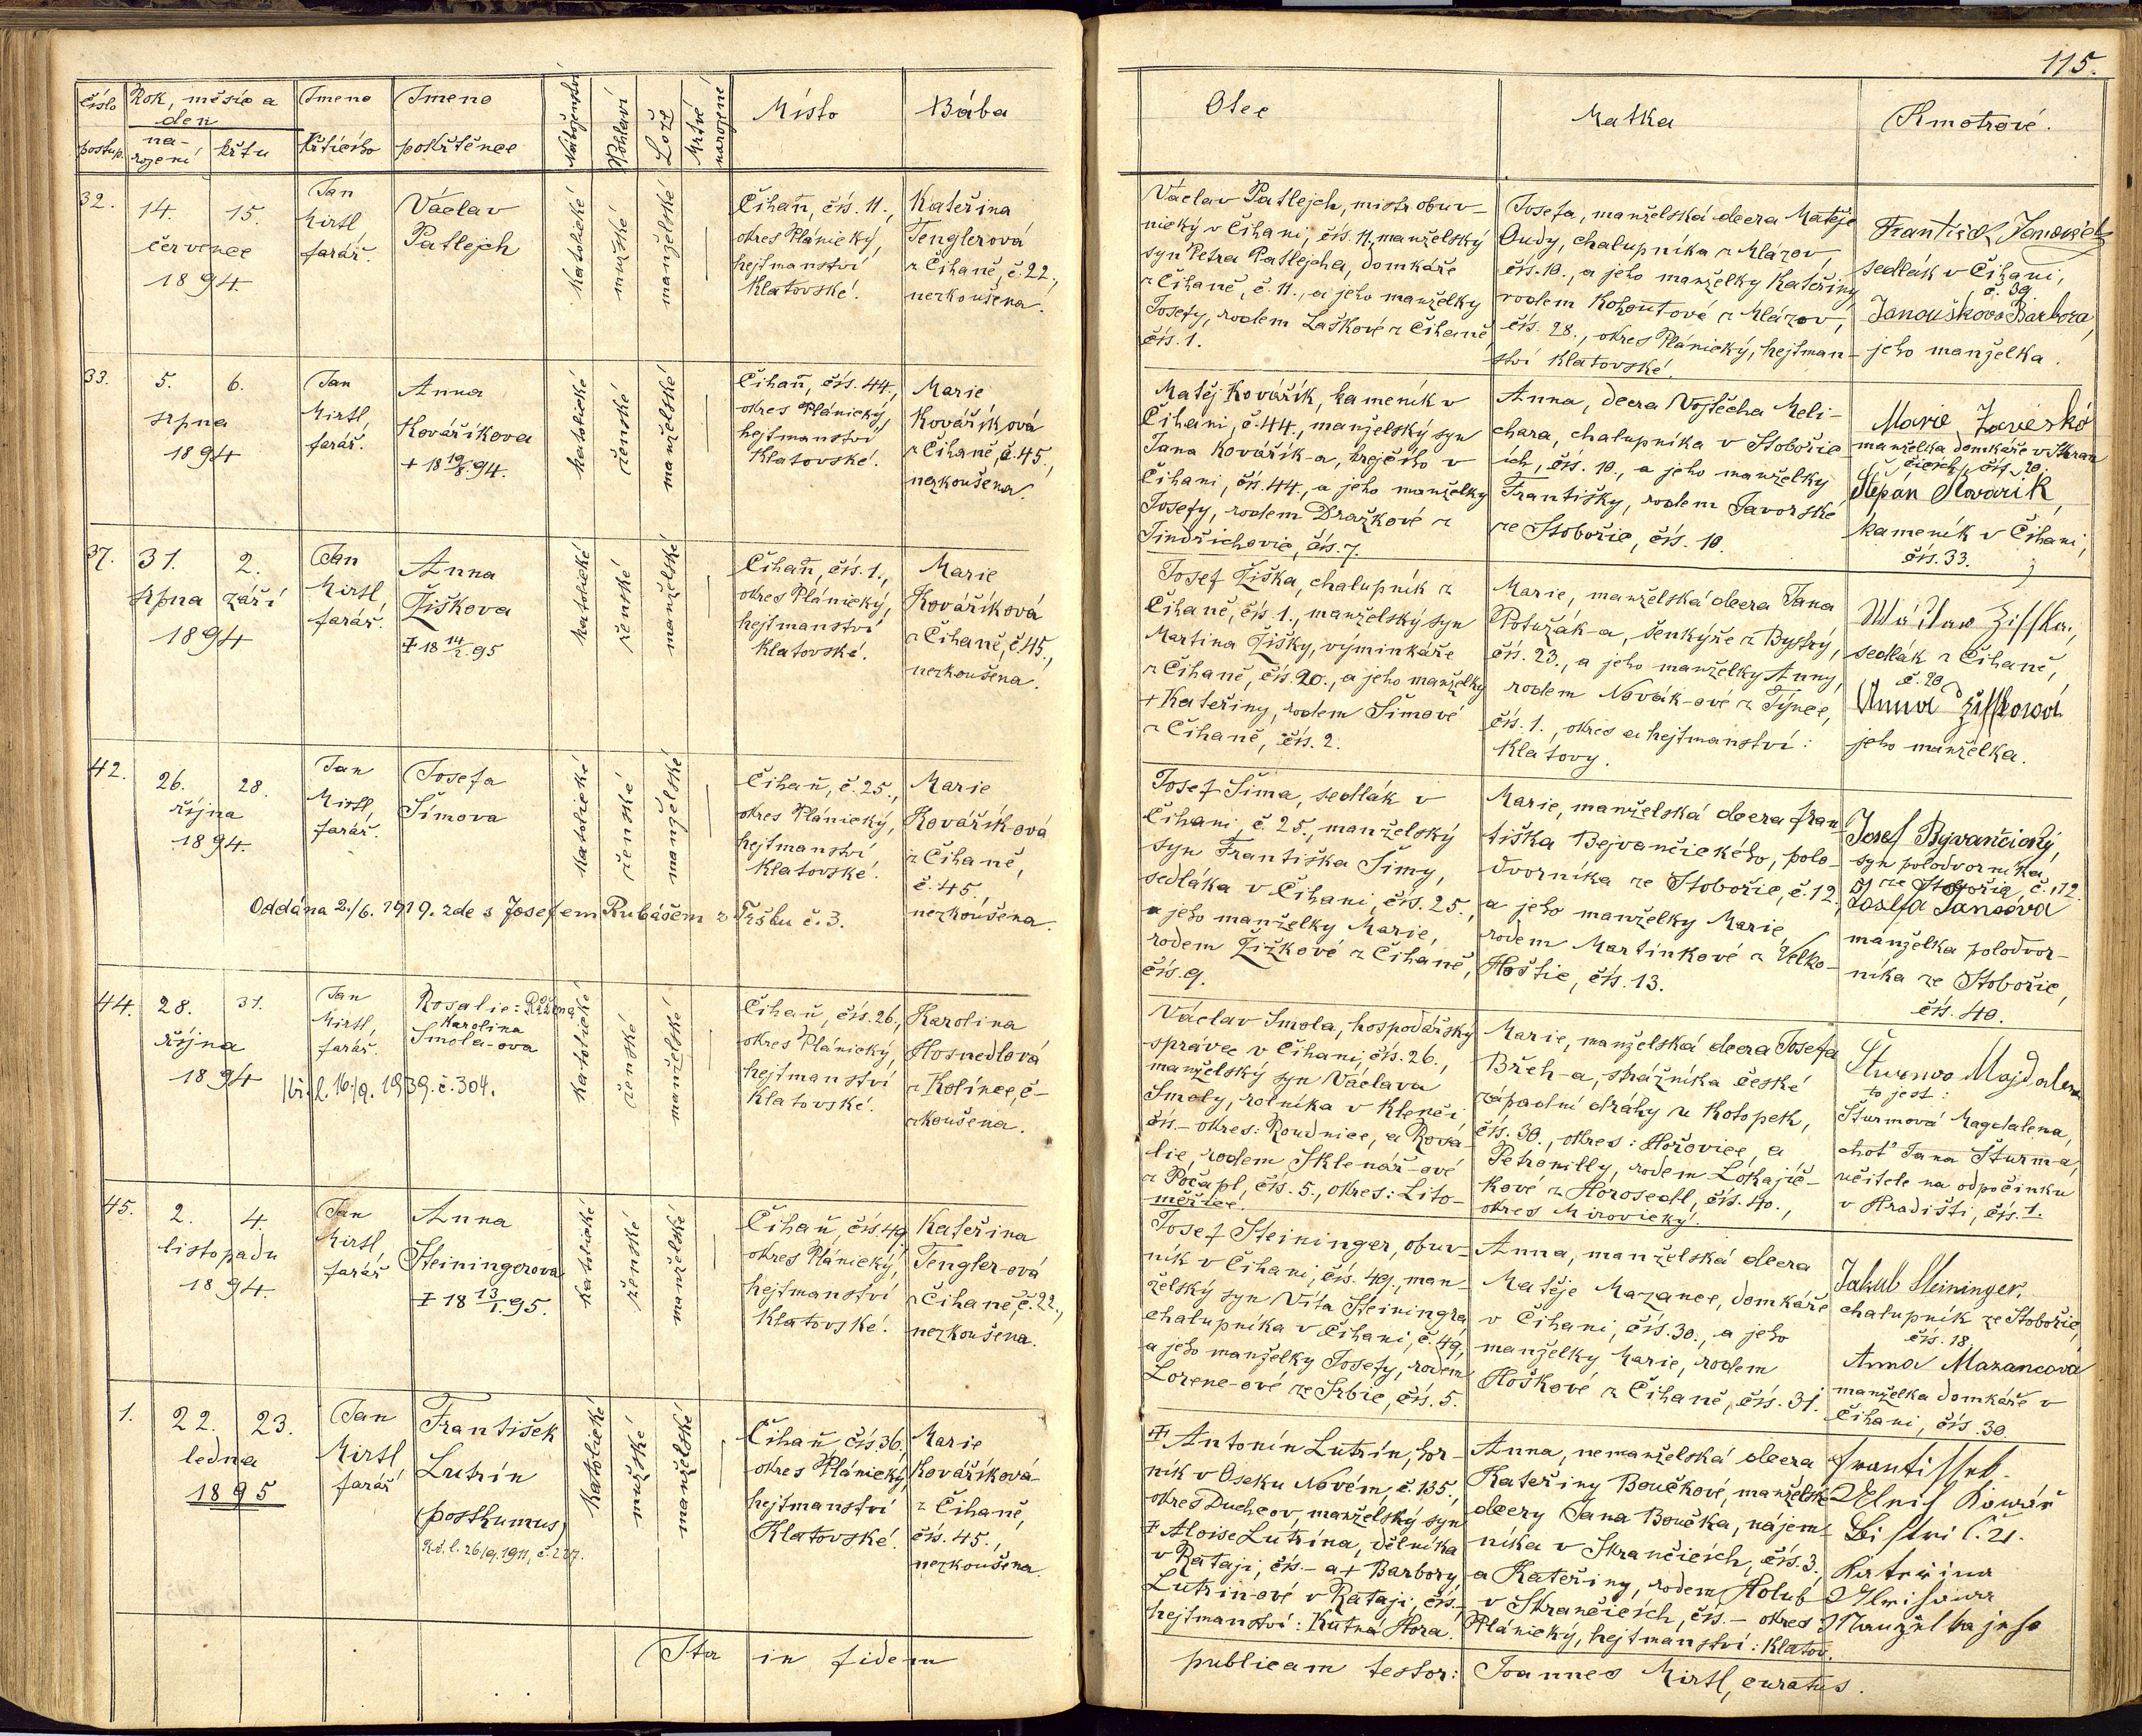 115.
Číslo postup.
Rok, měsíc a den
na-rození
křtu
Jmeno křtícího
Jmeno pokřtěnce
Náboženství
Pohlaví
Lože
Mrtvě narozené
Místo
Bába
Otec
Matka
Kmotrové.
32.
14. 15.
července
1894
Jan
Mirtl,
farář.
Václav
Patlejch
katolické
mužské
manželské
Čihaň, čís. 11.,
okres Plánický,
hejtmanství
Klatovské.
Kateřina
Tenglerová
z Čihaně, č. 22.,
nezkoušena.
Václav Patlejch, mistr obuv-
nický v Čihani, čís. 11, manželský
syn Petra Patlejcha, domkáře
z Čihaně, č. 11., a jeho manželky
Josefy, rodem Laškové z Čihaně,
čís. 1.
Josefa, manželská dcera Matěje
Oudy, chalupníka z Mlázov,
čís. 10., a jeho manželky Kateřiny
rodem Kohoutové z Mlázov,
čís. 28., okres Plánický, hejtman-
ství Klatovské.
František Janoušek
sedlák v Čihani,
č. 39.
Janouškova Barbora,
jeho manželka.
33.
5. 6.
srpna
1894
Jan
Mirtl,
farář.
Anna
Kovářikova
+ 18 19/8. 94.
katolické
ženské
manželské
Čihaň, čís. 44.,
okres Plánický,
hejtmanství
Klatovské.
Marie
Kovářiková
z Čihaně, č. 45.,
nezkoušena.
Matěj Kovářík, kameník v
Čihani, č. 44., manželský syn
Jana Kovářík-a, krejčího v
Čihani, čís. 44., a jeho manželky
Josefy, rodem Dražkové z
Jindřichovic, čís. 7.
Anna, dcera Vojtěcha Meli-
chara, chalupníka v Stobořic-
ích, čís. 10., a jeho manželky
Františky, rodem Javorské
ze Stobořic, čís. 10.
Marie
manželka domkáře v Skran
čicích, čís. 20.
Štěpán Kovařik,
kameník v Čihani,
čís. 33.
37.
31. 2.
srpna září
1894
Jan
Mirtl
farář.
Anna
Žiškova
‡ 18 14/1. 95
katolické
ženské
manželské
Čihaň, čís. 1.,
okres Plánický,
hejtmanství
Klatovské.
Marie
Kováříková
z Čihaně, č. 45.,
nezkoušena.
Josef Žiška, chalupník z
Čihaně, čís. 1., manželský syn
Martina Žišky, výminkáře
z Čihaně, čís. 20., a jeho manželky
+ Kateřiny, rodem Šimové
z Čihaně, čís. 2.
Marie, manželská dcera Jana
Potužák-a, šenkýře z Bystrý,
čís. 23., a jeho manželky Anny,
rodem Novák-ové z Týnec,
čís. 1., okres a hejtmanství:
Klatovy.
Wáclaw Ziſſka,
sedlák z Čihaně,
č. 20
Anna Ziſſkowá
jeho manželka.
42.
26. 28.
října
1894.
Jan
Mirtl,
farář.
Josefa
Šímova
katolické
ženské
manželské
Čihaň, č. 25.,
okres Plánický,
hejtmanství
Klatovské.
Marie
Kovářík-ová
z Čihaně,
č. 45.
nezkoušena.
Oddána 2./6. 1919. zde s Josefem Rubášem z Tržku č. 3.
Josef Šima, sedlák v
Čihani, č. 25., manželský
syn Františka Šimy,
sedláka v Čihani, čís. 25.,
a jeho manželky Marie,
rodem Žižkové z Čihaně,
čís. 9.
Marie, manželská dcera Fran-
tiška Bejvančického, polo-
dvorníka ze Stobořic, č. 12.,
a jeho manželky Marie,
rodem Martínkové z Velko-
Hoštic, čís. 13.
Josef Byvančický,
syn polodvorníka
ze Stobořic, č. 12.
Josefa Jancová
manželka polodvor-
níka ze Stobořic,
čís. 40.
44.
28. 31.
října
1894
Jan
Mirtl,
farář.
Rosalie: Růžena
Karolina
Smola-ova
Kř. l. 16./9. 1939. č. 304.
katolické
ženské
manželské
Čihaň, čís. 26.,
okres Plánický,
hejtmanství
Klatovské.
Karolina
Hosnedlová
z Kolínce, č-
zkoušena.
Václav Smola, hospodářský
správce v Čihani, čís. 26.,
manželský syn Václava
Smoly, rolníka v Klenčí,
čís.- okres: Roudnice, a Rosa-
lie, rodem Sklenář-ové
z Počapl, čís. 5., okres: Lito-
měřice.
Marie, manželská dcera Josefa
Břeh-a, strážníka české
západní dráhy z Kotopek,
čís. 30., okres: Hořovice, a
Petronilly, rodem Lokajíč-
kové z Horosedl, čís. 40.,
okres Mirovický.
Šturmova Majdalena
to jest:
Šturmová Magdalena,
choť Jana Šturm-a,
učitele na odpočinku
v Hradišti, čís. 1.
45.
2. 4.
listopadu
1894.
Jan
Mirtl
farář
Anna
Steiningerova
‡ 18 13/1. 95.
katolické
ženské
manželské
Čihaň, čís. 49.
okres Plánický,
hejtmanství
Klatovské.
Kateřina
Tengler-ová
z Čihaně, č. 22.,
nezkoušena.
Josef Steininger, obuv-
ník v Čihani, čís. 49., man-
želský syn Víta Steiningra,
chalupníka v Čihani, č. 49,
a jeho manželky Josefy, rodem
Lorenc-ové ze Srbic, čís. 5.
Anna, manželská dcera
Matěje Mazance, domkáře
v Čihani, čís. 30., a jeho
manželky Marie, rodem
Hoškové z Čihaně, čís. 31.
Jakub Steininger,
chalupník ze Stobořic,
čís. 18.
Anna Mazancová
manželka domkáře v
Čihani, čís. 30.
1.
22. 23.
ledna
1895
Jan
Mirtl
farář
František
Lutrín
(posthumus)
Kř. l. 26/9. 1911, č. 227.
katolické
mužské
manželské
Čihaň, čís. 36.
okres Plánický,
hejtmanství
Klatovské.
Marie
Kováříková
z Čihaně,
čís. 45.,
nezkoušena.
‡ Antonín Lutrín, hor-
ník v Oseku Novém, č. 135,
okres Duchcov, manželský syn
‡ Aloise Lutrína, dělníka
v Rataji, čís.- a + Barbory
Lutrin-ové v Rataji, čís.-
hejtmanství: Kutná Hora.
Anna, nemanželská dcera
Kateřiny Boučkové, manželské
dcery Jana Boučka, nájem-
níka v Skrančicích, čís. 3.,
a Kateřiny, rodem Holub
v Skrančicích, čís.- okres
Plánický, hejtmanství: Klatov.
Frantiſſek
Kowář
č. 21.
Kateřina
Manželka jeho
Ita in fidem
publicam testor: Joannes Mirtl, curatus.